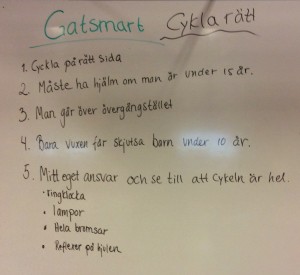 Gatsmart Cykla rätt
1. Cyckla på rätt sida
2. Måste ha hjälm om man är under 15 år.
3. Man går över övergångstället
4. Bara vuxen får skjutsa barn under 10 år.
5. Mitt eget ansvar och se till att Cykeln är hel.
• ringklocka
• lampor
• Hela bromsar
• Reflexer på hjulen